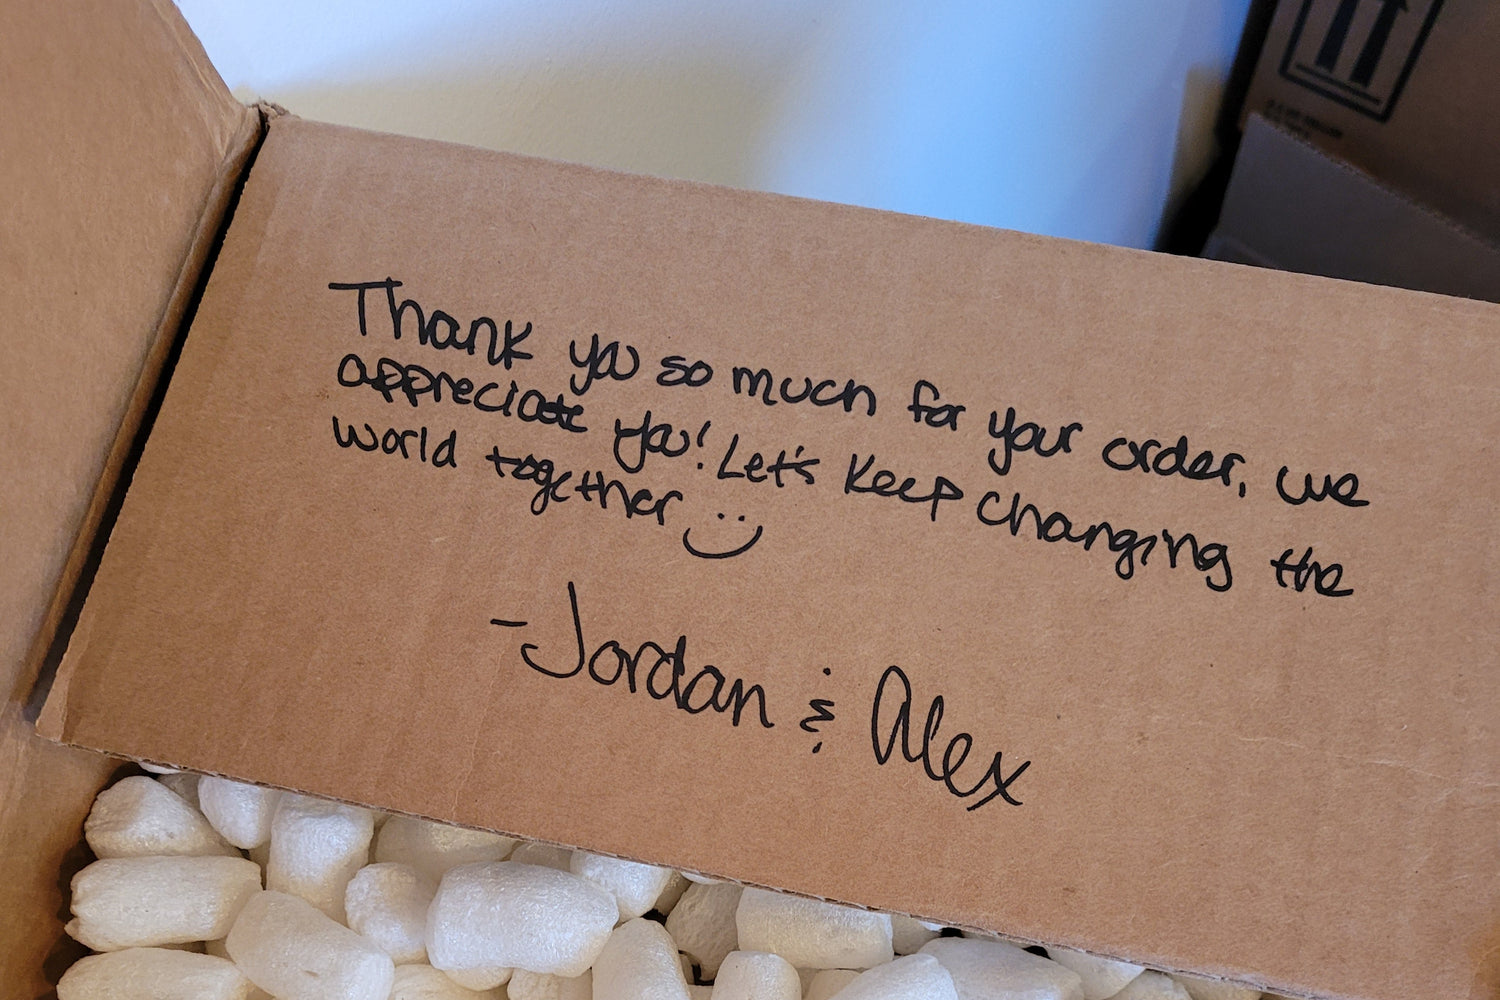 Thank you so much for your order, we
appreciate you! Let's keep changing the
world together
-Jordan & Alex